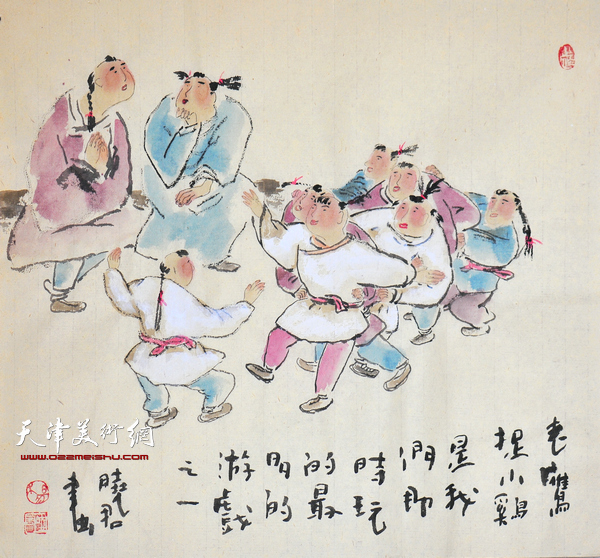 老鷹
捉小鷄
是我
們那
時玩
的最
多的
游戲
之一
曉君
畫
天津美術網
www.022meishu.com